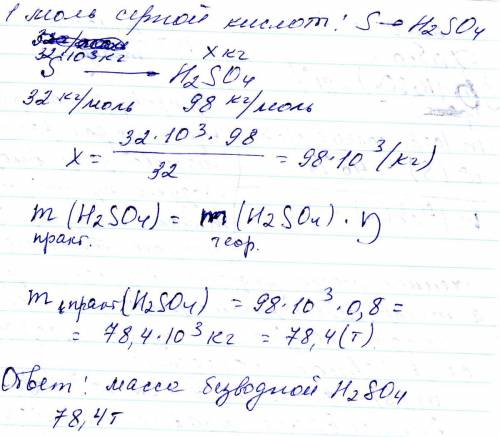 1 моль серной кислоты! S → H2SO4
32·10³ кг x кг
S → H2SO4
32 кг/моль 98 кг/моль
x = 32·10³·98 / 32 = 98·10³ (кг)
m (H2SO4) = m (H2SO4) · η
практ. теор.
m практ (H2SO4) = 98·10³·0,8 =
= 78,4·10³ кг = 78,4 (т)
Ответ: масса безводной H2SO4
78,4 т